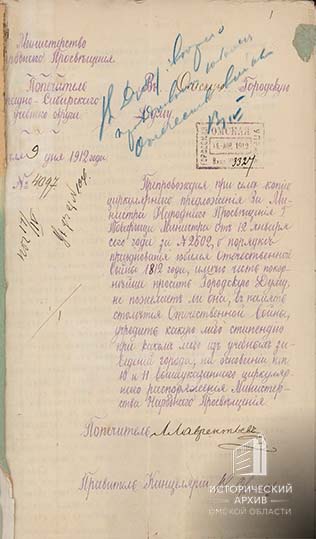 1
Министерство
Народнаго Просвѣщенія
Попечитель
Западно-Сибирскаго
учебнаго округа
9 дня 1912 года
№ 4097
Въ Омскую Городскую
Думу
ОМСКАЯ
1912
3327
Препровождая при семъ копію
циркулярнаго предложенія за Ми-
нистра Народнаго Просвѣщенія Г.
Товарища Министра отъ 12 января
сего года за № 2502, о порядкѣ
празднованія юбилея Отечественной
войны 1812 года, имѣю честь покор-
нѣйше просить Городскую Думу,
не пожелаетъ ли она, въ память
столѣтія Отечественной войны,
учредить какую либо стипендію
при какомъ либо изъ учебныхъ за-
веденій города, на основаніи п.п.
10 и 11 вышеуказаннаго циркуляр-
наго распоряженія Министер-
ства Народнаго Просвѣщенія
Попечитель Л. Лаврентьевъ
Правитель Канцеляріи
ИСТОРИЧЕСКИЙ
АРХИВ
ОМСКОЙ ОБЛАСТИ